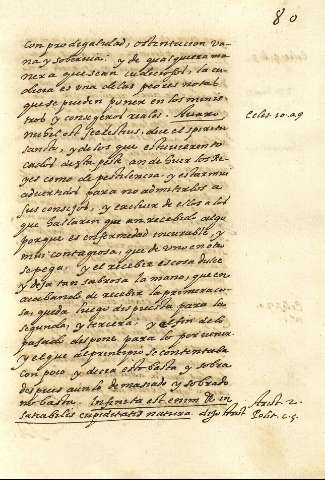 80
con prodegalidad, obstentacion va-
na y soberuia. y de qualquera ma-
nera que sean cudiciosos, la cu-
dicia es una de las peores notas
que se pueden poner en los minis-
tros y consegeros reales. Auaro
nihil est scelestius, dice el spiritu
sancto, y de los que estuuieren to-
cados desta peste, an de huir los Re-
yes como de pestilencia. y estar mui
aduertidos para no admitirlos a
sus consejos, y excluir de ellos a los
que hallaren que an recebido algo
porque es enfermedad incurable, y
mui contagiosa, que de uno en otro
se pega. y el recebir es cosa dulce
y deja tan sabrosa la mano, que en
acabando de recebir la primera ve-
z, queda luego dispuesta para la
segunda, y tercera. y el fin de lo
pasado dispone para lo por venir
y el que al principio se contentaba
con poco y decia esto basta y sobra
despues aun lo demasiado y sobrado
no basta. Infinita est enim et in-
satiabiles cupiditates natura dijo Arist
Eccles. 10. a 9
Arist. 2.
Polit. c. 5.